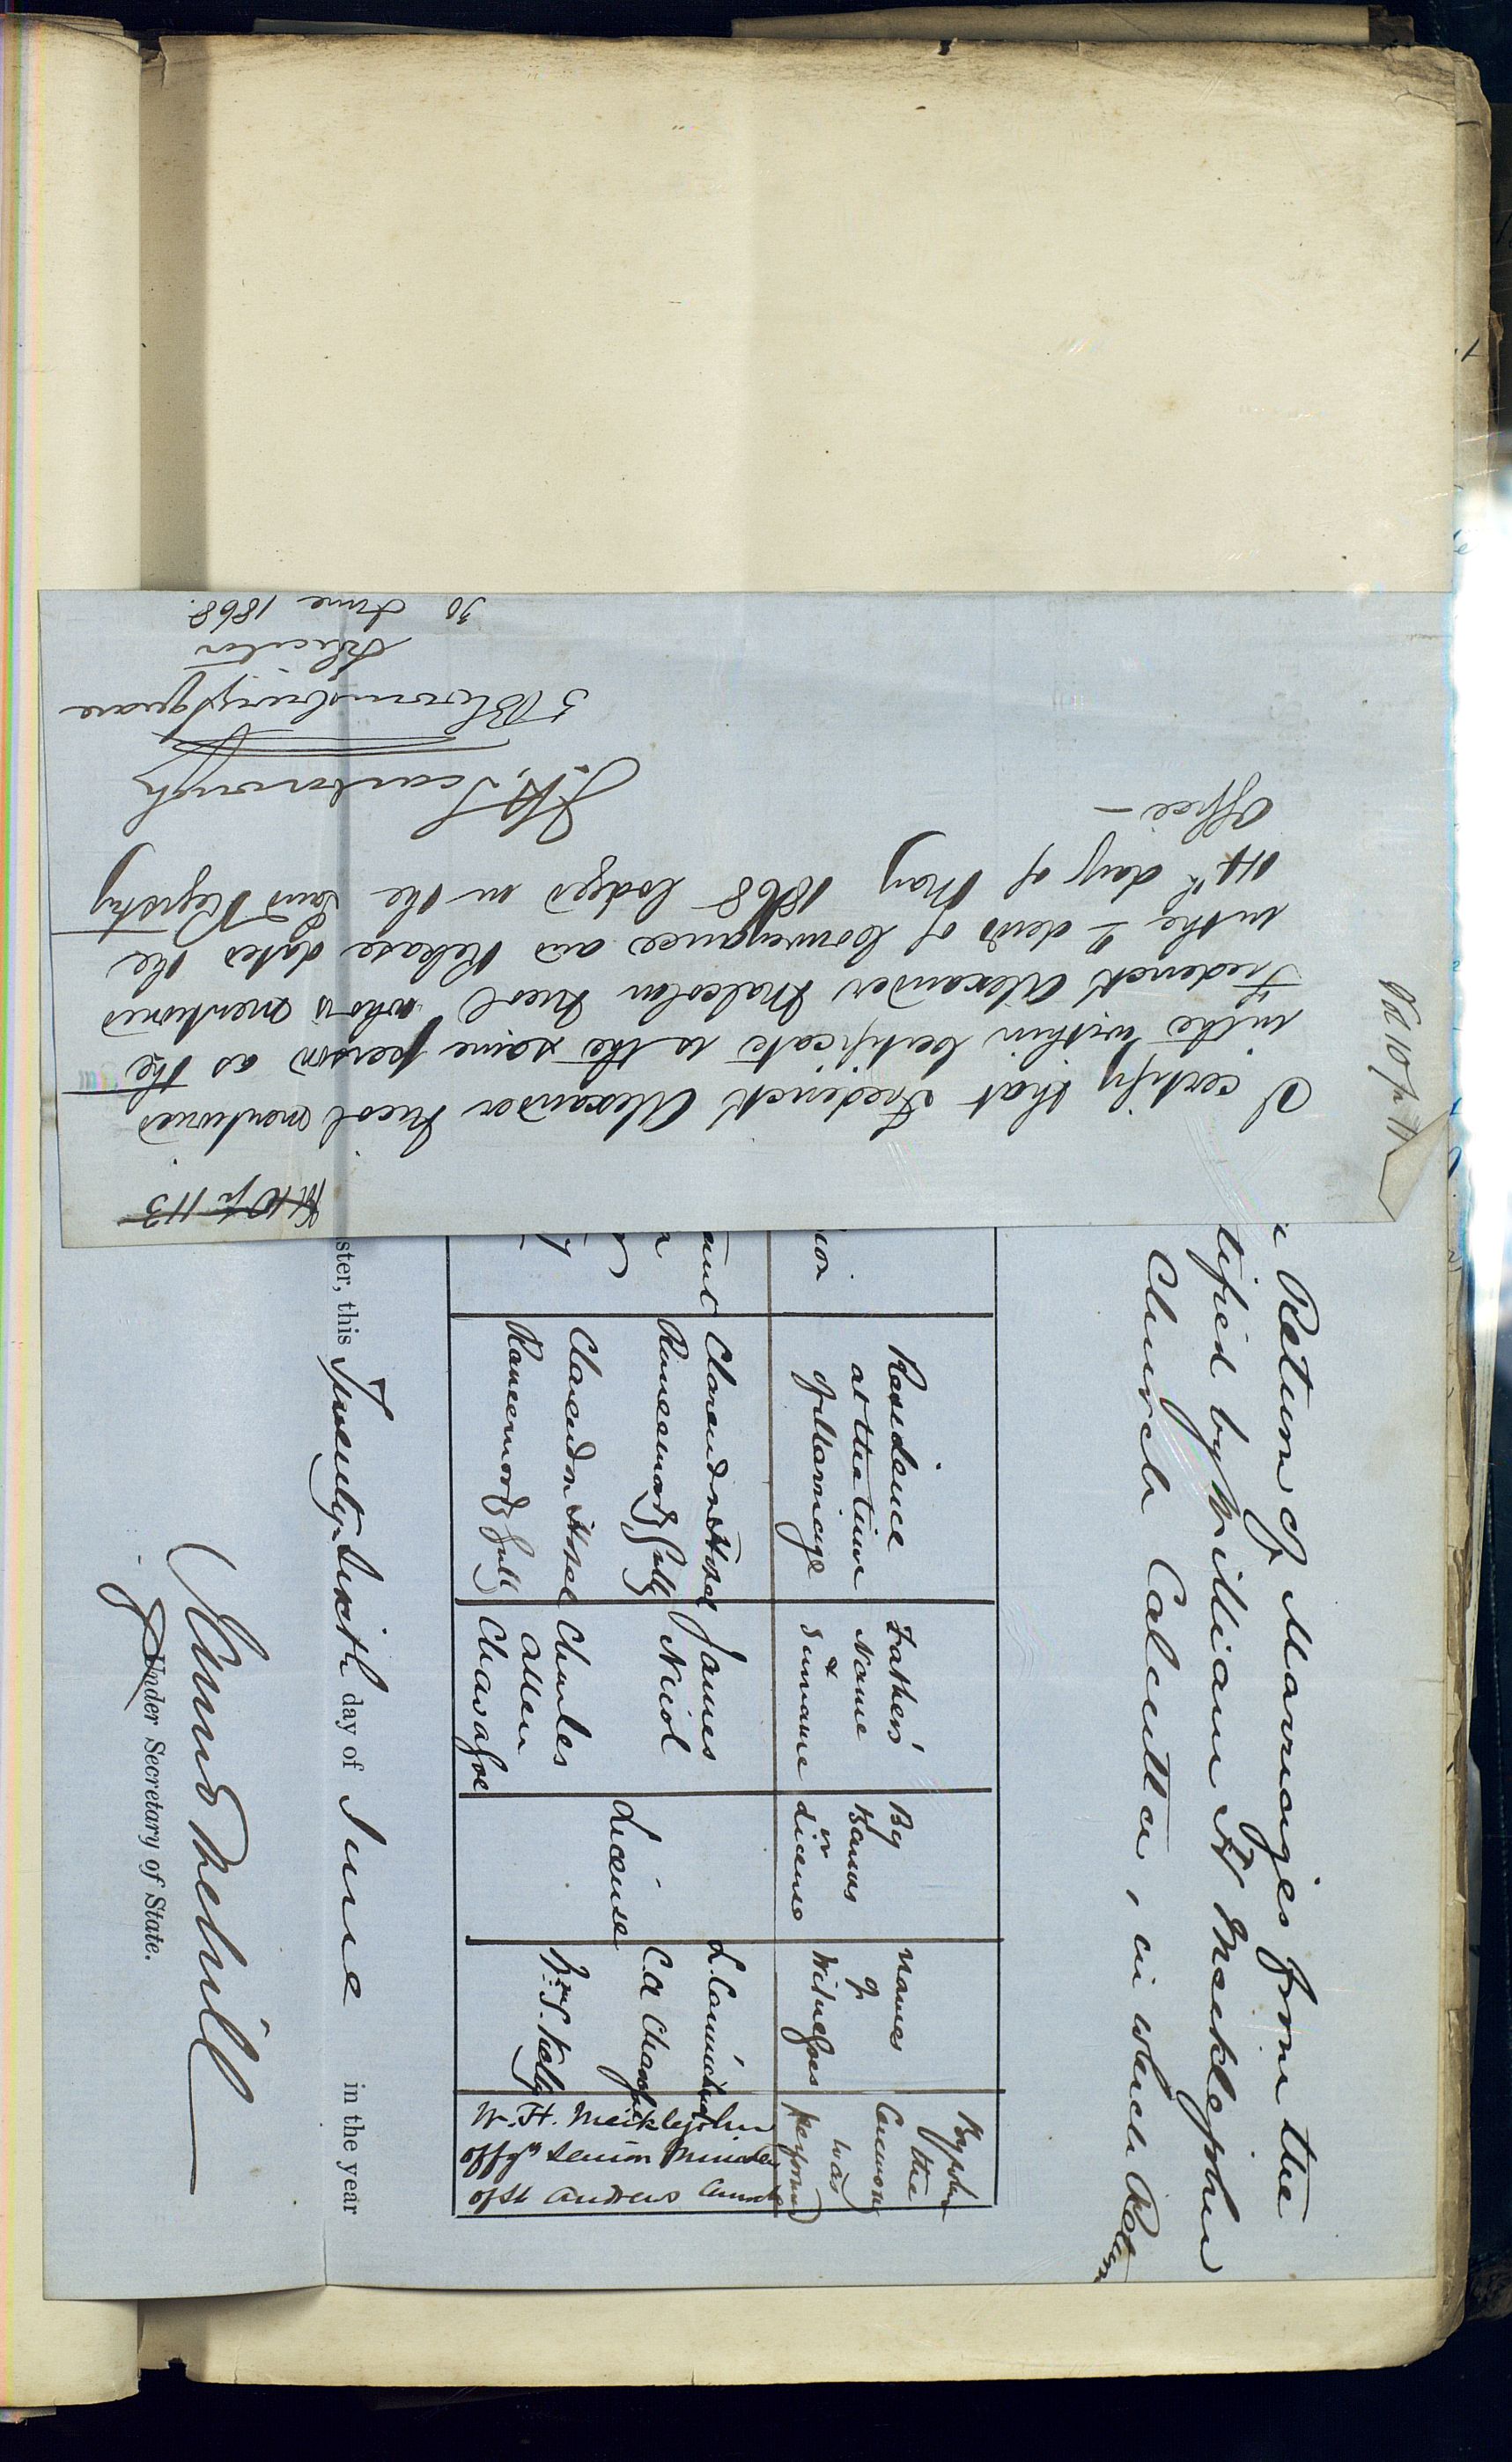 Vol 10 p 113
I certify that Frederick Alexander Nicol mentioned
in the within Certificate is the same person as the
Frederick Alexander Malcolm Nicol who is mentioned
in the 2 deeds of Conveyance and Release dated the
14th day of May 1868 lodged in the Land Registry
Office –
Scarborough
5 Bloomsbury Square
Solicitor
30 June 1868.
Vol 10 p 11
Return of Marriages from the
tified by William H Meiklejohn
Church Calcutta, in which
ion
Residence
at the time
of Marriage
Father's
Name
&
Surname
By
Banns
or
License
Names
of
Witnesses
By whom
the
Ceremony
was
performed
Clarendon Hotel
Raneemoody Gully
James
Nicol
Clarendon Hotel
Raneemoody Gully
Charles
Allen
License
C.A
Wm S. Kelly
W. H. Meiklejohn
offg Senior Minister
of St Andrews Church
ster, this Twenty Sixth day of June in the year
Melvill
Under Secretary of State.